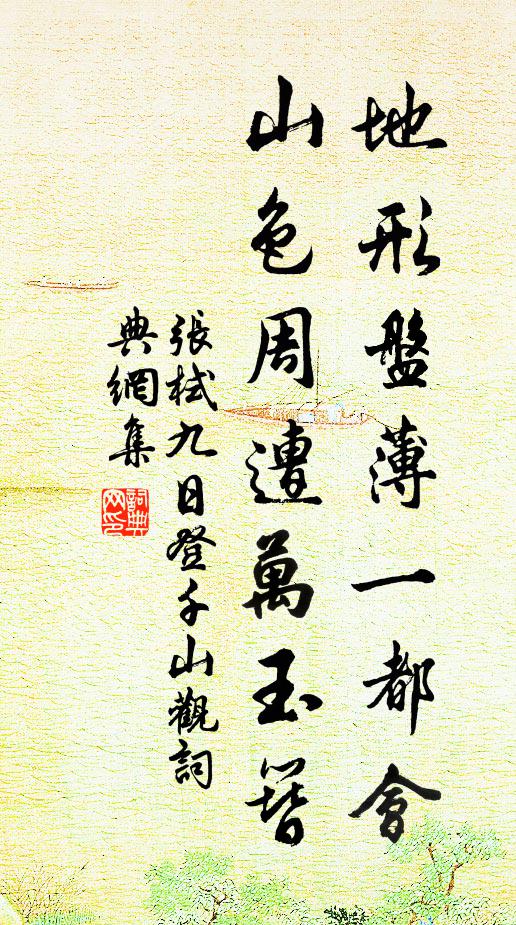 地形盤薄一都會
山色周遭萬玉簪
張栻九日登千山觀詞
典網集
詞典
网印